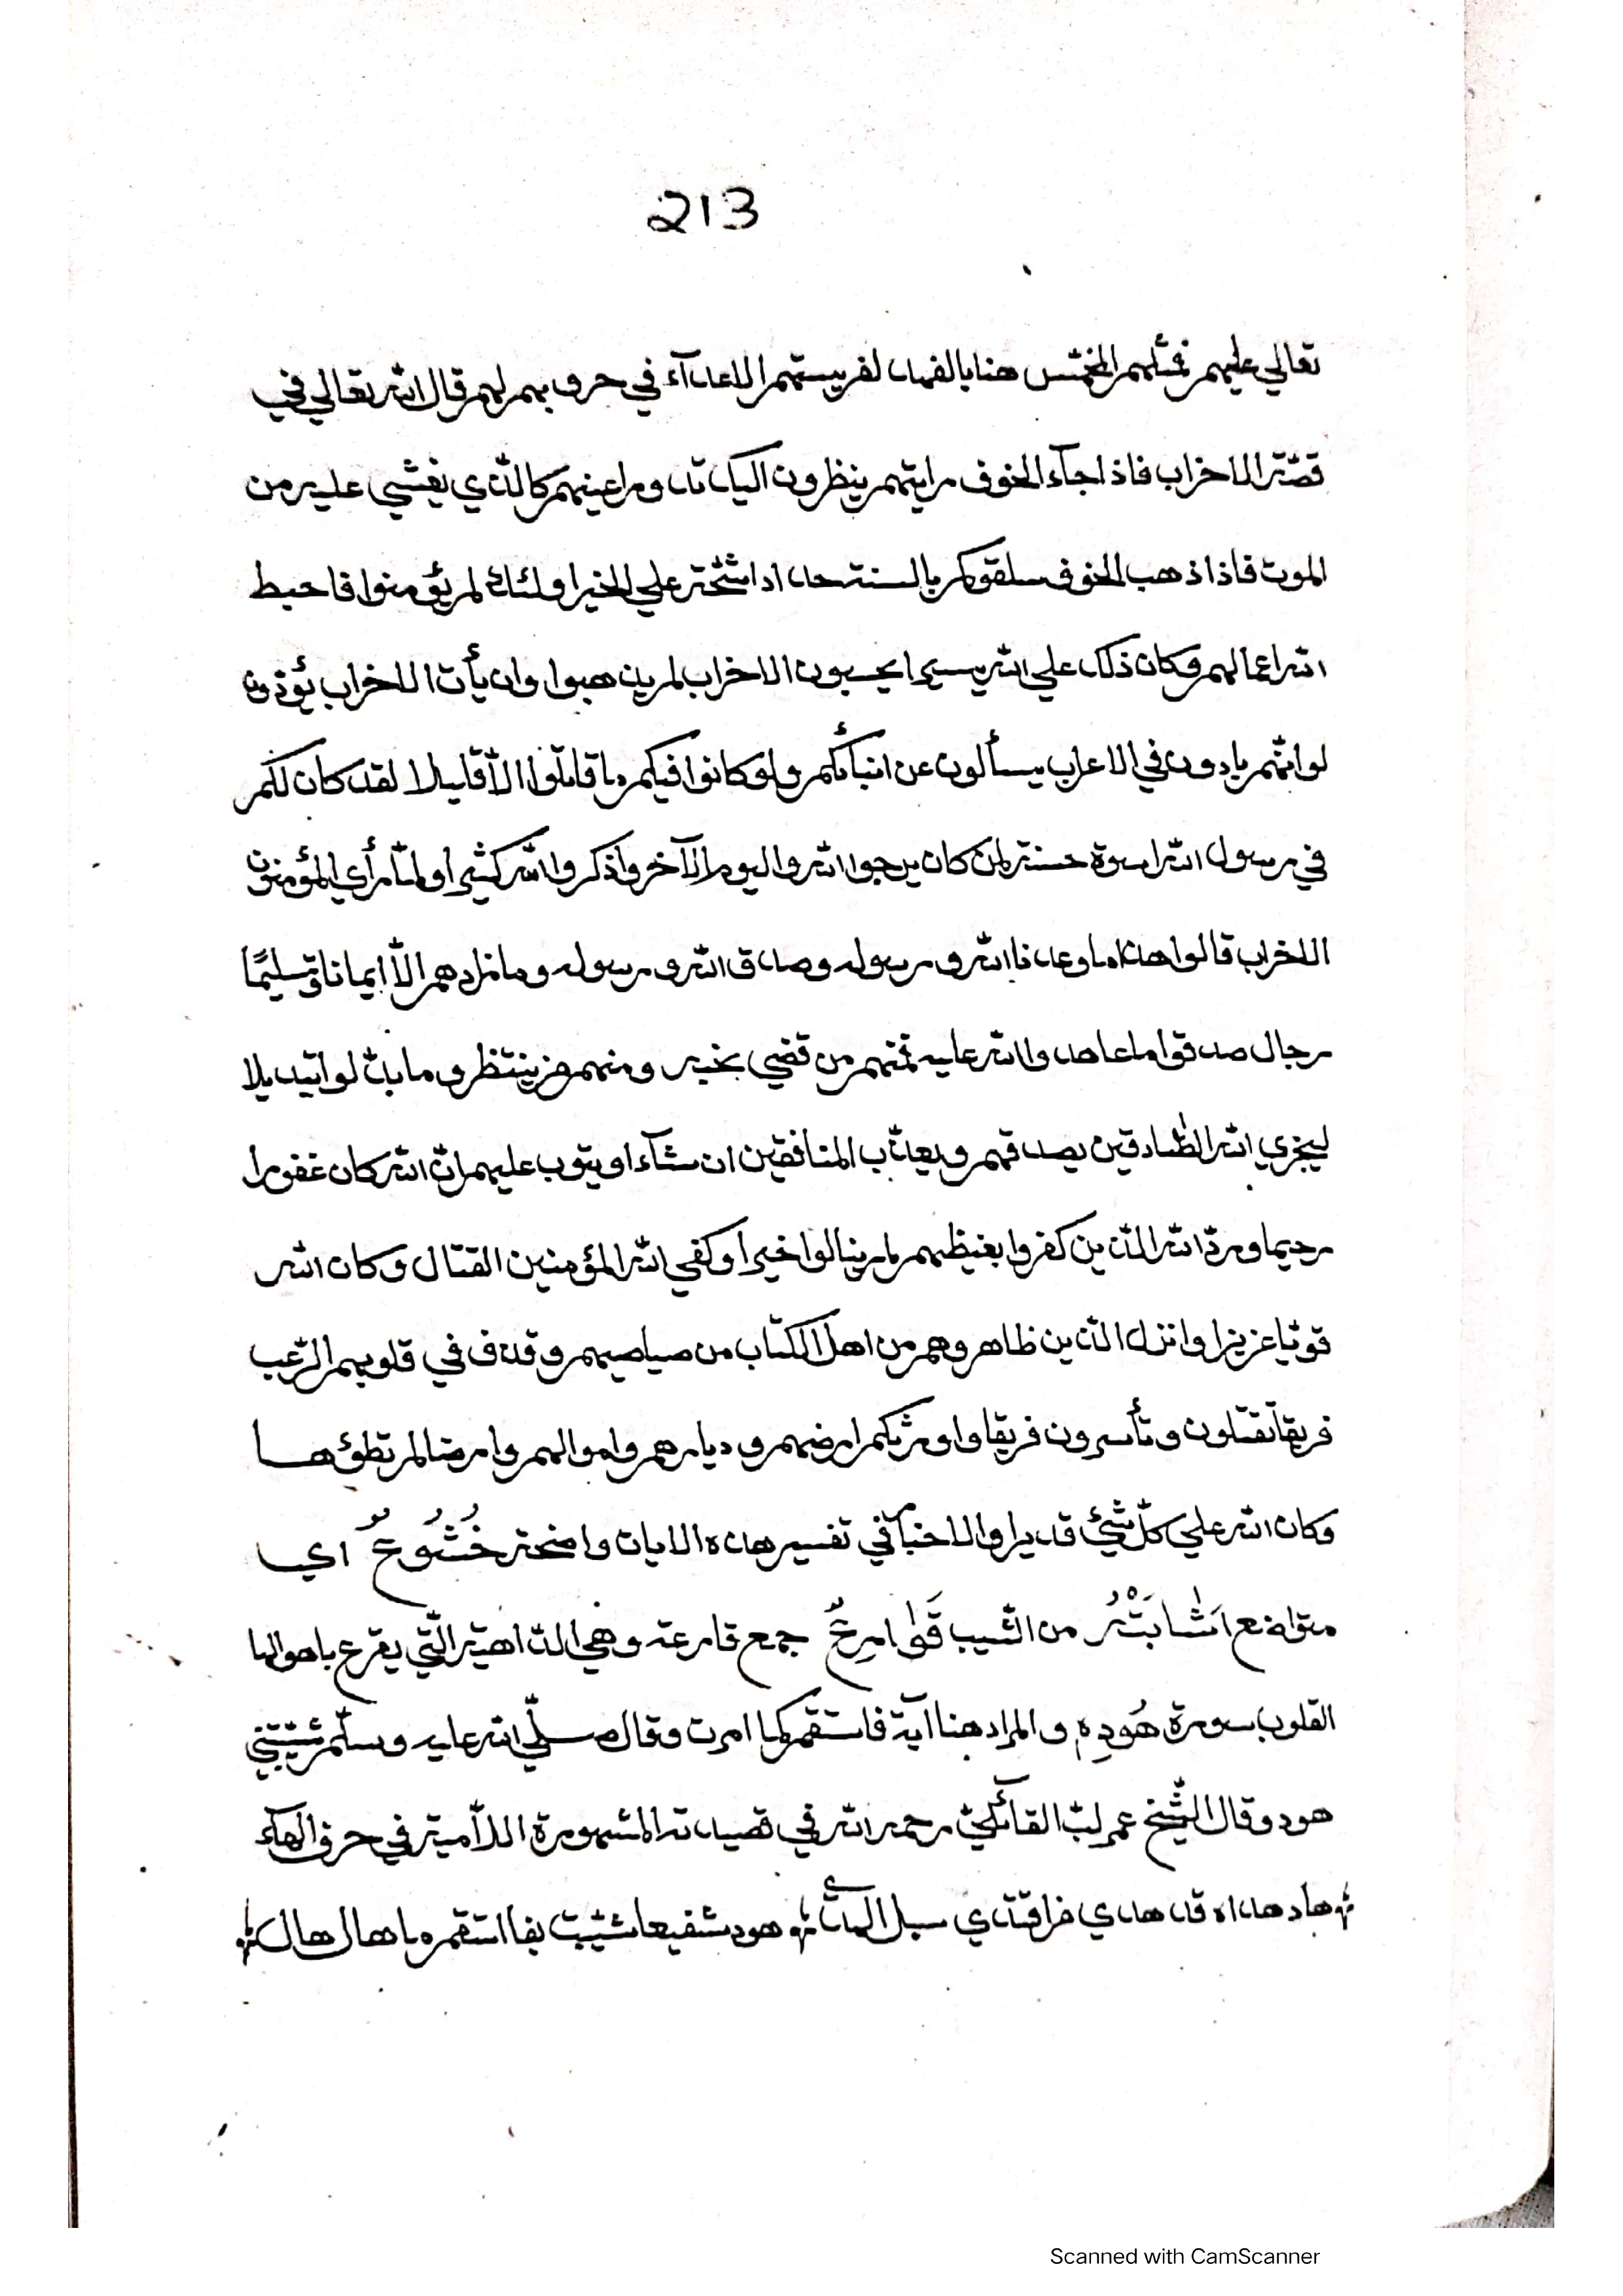 213
تعالي عليهم فمثلهم المخمّس هنا بالفهد لفريستهم الاعدآء في حروبهم لهم قال الله تعالي في
قصّة الاحزاب فاذا جآء الخوف رايتهم ينظرون اليك تدور اعينهم كالّذي يغشي عليه من
الموت فاذا ذهب الخوف سلقوكم بالسنة حداد اشحّة علي الخير اولئك لم يؤمنوا فاحبط
الله اعمالهم وكان ذلك علي الله يسيرا يحسبون الاحزاب لم يذهبوا وان يأت الاحزاب يؤذون
لو انّهم بادون في الاعراب يسألون عن انبأئكم ولو كانوا فيكم ما قاتلوا الاّ قليلا لقد كان لكم
في رسول الله اسوة حسنة لمن كان يرجوا الله واليوم الآخر واذكروا الله كثيرا ولمّا رأي المؤمنون
الاحزاب قالوا هذا ما وعدنا الله ورسوله وصدق الله ورسوله وما زادهم الاّ ايمانا وتسليمًا
رجال صدقوا ما عاهدوا الله عليه فمنهم من قضي نحبه ومنهم من ينتظر وما بدّلوا تبديلا
ليجزي الله الصّادقين بصدقهم ويعذّب المنافقين ان شآء او يتوب عليهم انّ الله كان غفورا
رحيما وردّ الله الّذين كفروا بغيظهم لم ينالوا خيرا وكفي الله المؤمنين القتال وكان الله
قويّا عزيزا وانزل الّذين ظاهروهم من اهل الكتاب من صياصيهم وقذف في قلوبهم الرّعب
فريقا تقتلون وتأسرون فريقا واورثكم ارضهم وديارهم واموالهم وارضا لم تطؤها
وكان الله علي كلّ شئ قديرا والاخبآ في تفسير هذه الايات واضحة خُشُوعٌ اي
متواضع اَشَابَتْهُ من الشّيب قَوَارِعٌ جمع قارعة وهي الدّاهية الّتي يقرع باهوالها
القلوب سورة هُودِه والمراد هنا اية فاستقم كما امرت وقال صلّي الله عليه وسلّم شيّبتني
هود وقال الشّيخ عمر لبّ القائليّ رحمه الله في قصيدته المشهورة اللاّمية في حرف الهآء
هاد هداه قد هدي سبل الهدي هود شفيعا شيّبت بفا استقم هال هال